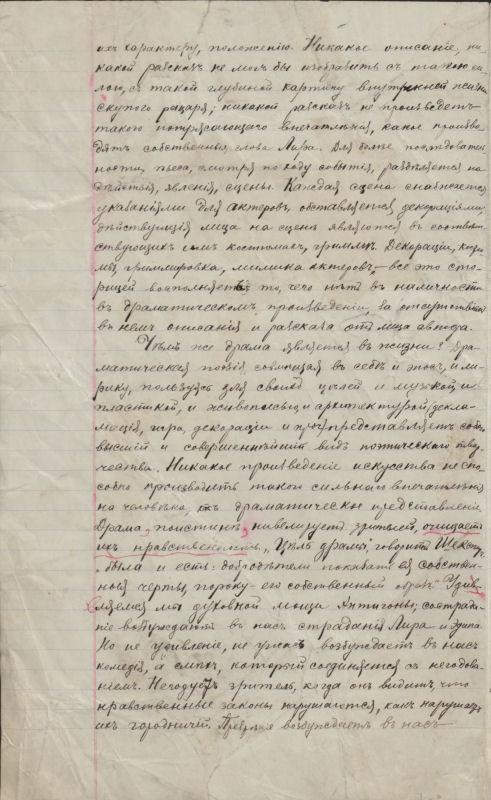 ихъ характеру, положенію. Никакое описаніе, ни
какой разсказъ не могъ бы изобразить съ такою си
лою, съ такой глубиной картину внутренней жизни
скупого рыцаря; никакой разсказъ не произведетъ
такого потрясающаго впечатлѣнія, какое произво
дятъ собственныя слова Лира. Для более последователь
ности, пьеса, смотря по ходу событія, раздѣляется на
дѣйствія, явленія, сцены. Каждая сцена снабжается
указаніями для актеровъ, обставляется декораціями,
дѣйствующія лица на сценѣ являются въ соответ
ствующихъ имъ костюмахъ, гриммѣ. Декораціи, костю
мы, гриммировка, мимика актеровъ – все это сто
рицей восполняетъ то, чего нѣтъ въ наличности
въ драматическомъ произведеніи, за отсутствіемъ
въ немъ описанія и разсказа отъ лица автора.
Чѣмъ же драма является въ жизни? Дра
матическая поэзія, совмещая въ себѣ и эпосъ, и ли
рику, пользуясь для своихъ цѣлей и музыкой, и
пластикой, и живописью и архитектурой (декла
мація, игра, декораціи и пр.) представляетъ собою
высшій и совершеннѣйшій видъ поэтическаго твор
чества. Никакое произведеніе искусства не спо
собно производить такого сильнаго впечатлѣнія
на человѣка, какъ драматическое представленіе.
Драма, поистинѣ, зрителей, очищаетъ
ихъ нравственность. „Цѣль драмы", говоритъ Шекспиръ,
„была и есть: добродѣтели показать ея собствен
ныя черты, пороку – его собственный образъ." Удив
ляемся мы духовной мощи Антигоны; сострада
ніе возбуждаютъ въ насъ страданія Лира и Эдипа.
Но не удивленіе, не ужасъ возбуждаетъ въ насъ
комедія, а смѣхъ, который соединяется съ негодова
ніемъ. Негодуетъ зритель, когда онъ видитъ, что
нравственные законы нарушаются, какъ нарушаетъ
ихъ городничій. возбуждаетъ въ насъ